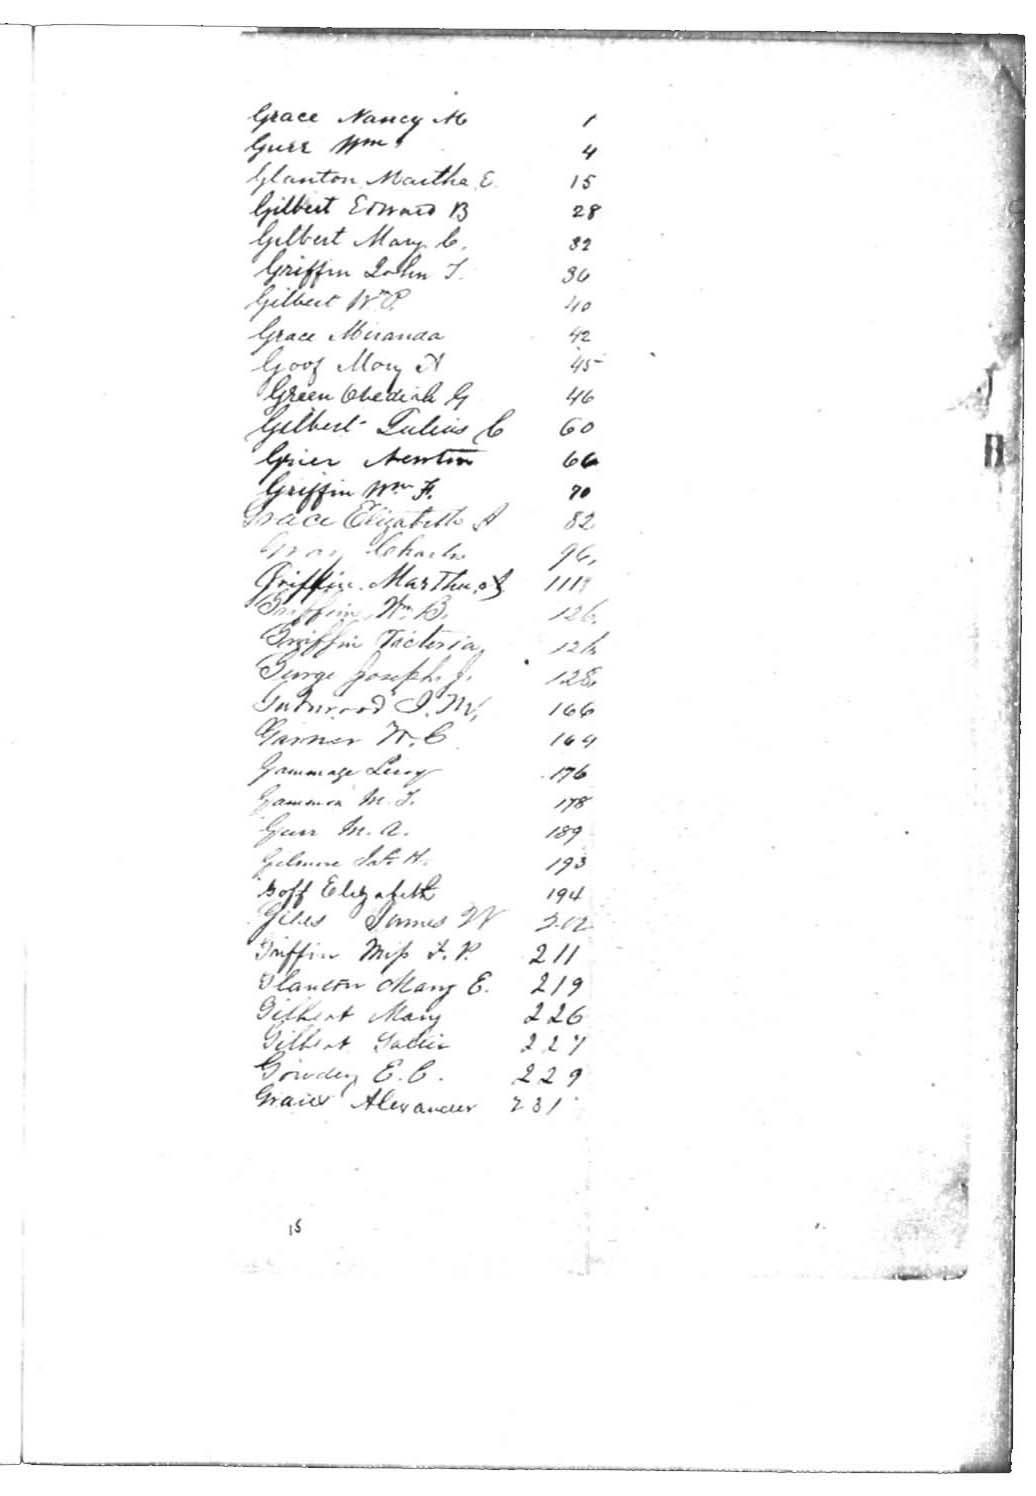 Grace Nancy M 1
Gurr Wm 4
Glanton Martha E. 15
Gilbert Edward B 28
Gilbert Mary C. 32
Griffin John T. 36
Gilbert Wm P. 40
Grace Miranda 42
Goof Mary A 45
Green Obediah G 46
Gilbert Julius C 60
Grier Newton 66
Griffin Wm F. 70
Grace Elizabeth A 82
Gray Charles 96
Griffin Martha 111
Griffin Wm B. 126
Griffin Victoria 126
George Joseph J. 128
J. M. 166
Garner W. C. 164
Gammage Leroy 176
Gammon M. J. 178
Gurr M. A. 189
Gilmore H. 193
Goff Elizabeth 194
Giles James W 202
Griffin Miss F. P. 211
Glanton Mary E. 219
Gilbert Mary 226
Gilbert Sallie 227
Gowdey E. C. 229
Alexander 231
15
H